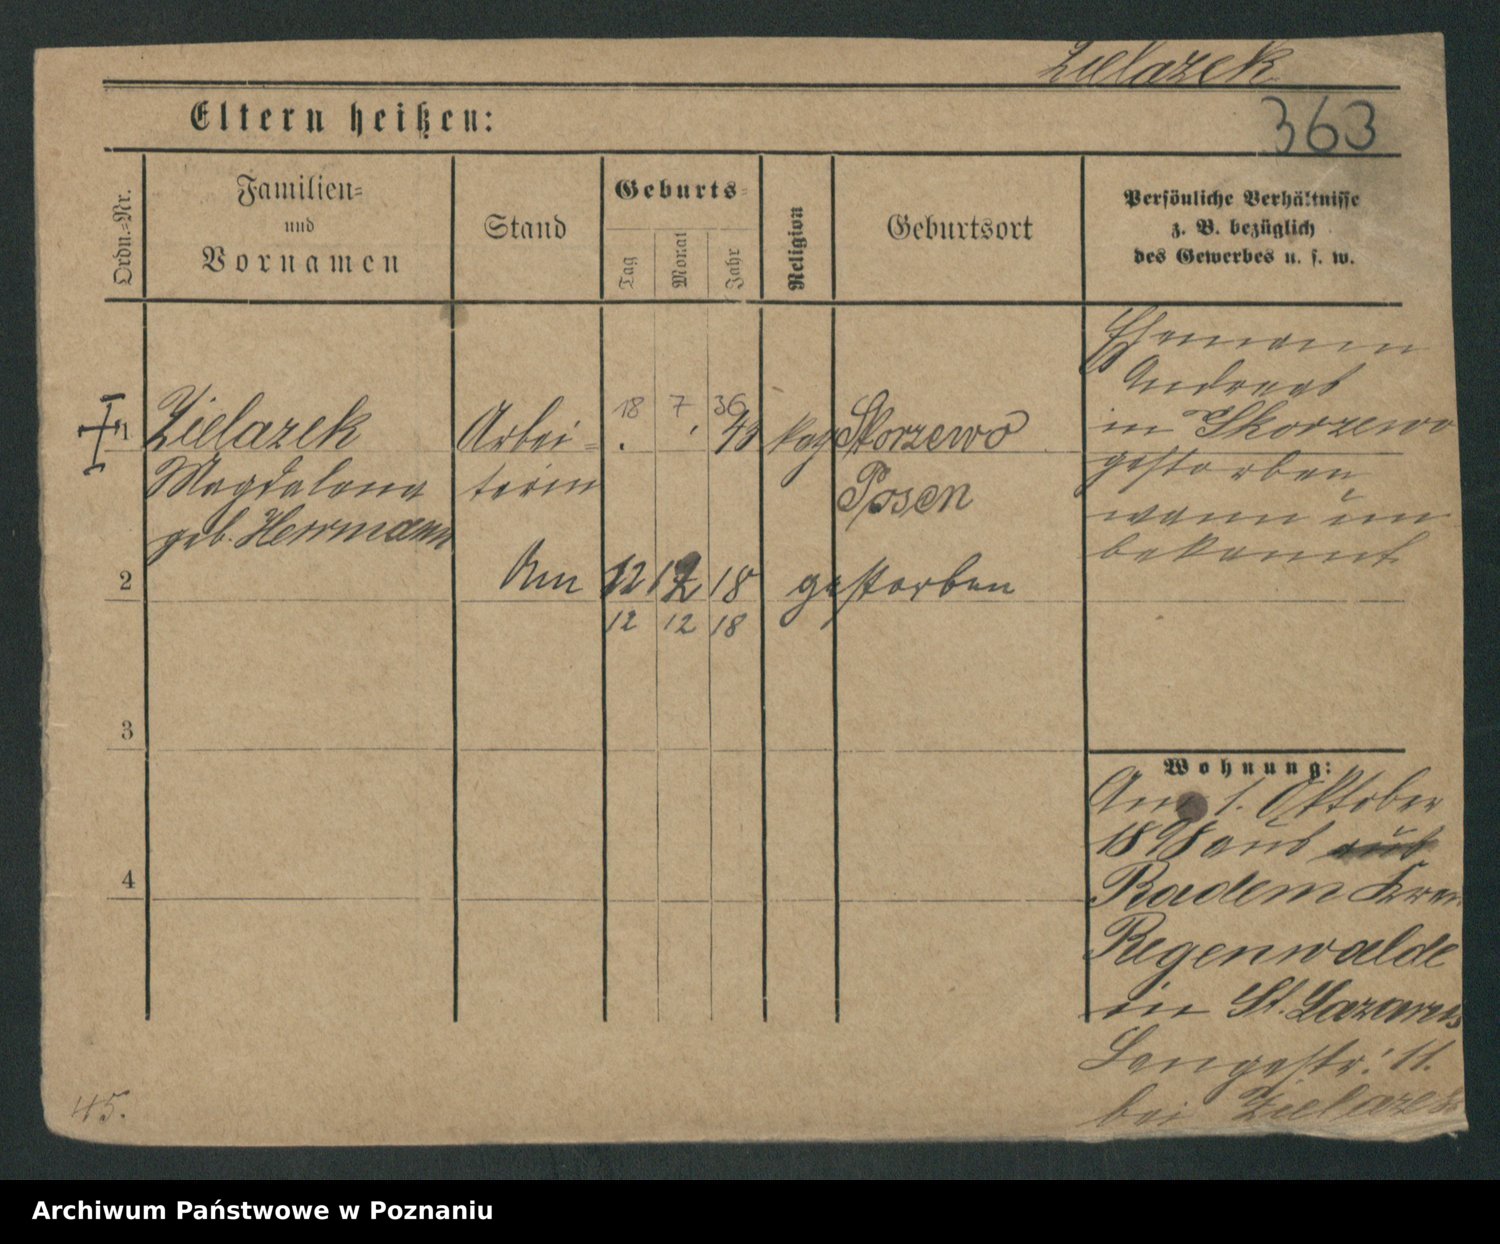 Zielazek
363
Eltern heißen:
Ordn.-Nr.
Familien- und Vornamen
Stand
Geburts-
Tag
Monat
Jahr
Religion
Geburtsort
Persönliche Verhältnisse
z. B. bezüglich
des Gewerbes u. s. w.
1
Zielazek
Magdalena
geb. Herrmann
Arbei-
terin
18 7 36
kath
Skorzewo
Posen
Ehemann
Andreas
in Skorzewo
gestorben
wann un
bekannt
2
Am 12 12 18 gestorben
12 12 18
3
4
Wohnung:
Am 1. Oktober
1898 aus
Radem
Regenwalde
in St. Lazarus
Langestr. 11.
bei Zielazek
45.
Archiwum Państwowe w Poznaniu